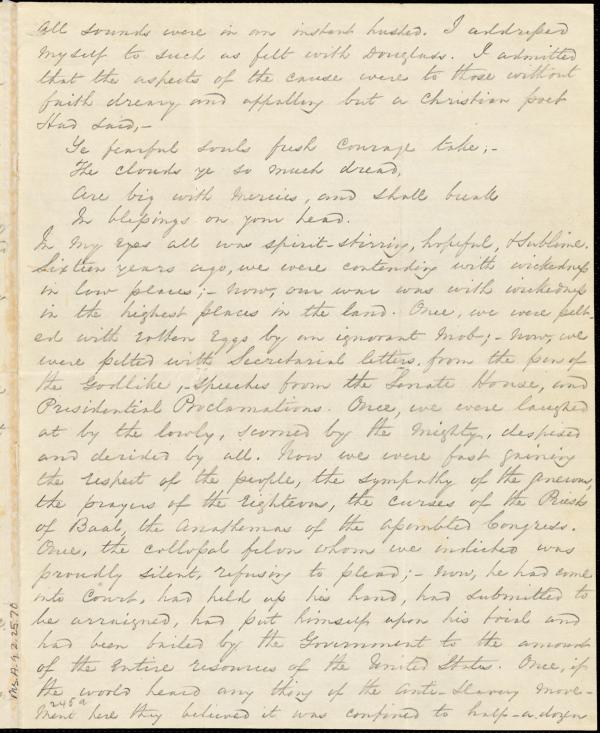 all sounds were in an instant hushed. I addressed
myself to such as felt with Douglass. I admitted
that the aspects of the cause were to those without
faith dreary and appalling but a Christian poet
Had said,–
Ye fearful souls fresh courage take;–
The clouds ye so much dread,
Are big with mercies, and shall break
In blessings on your head.
In my eyes all was spirit-stirring, hopeful, & sublime.
Sixteen years ago, we were contending with wickedness
in low places;– Now, our war was with wickedness
in the highest places in the land. Once, we were pelt-
ed with rotten Eggs by an ignorant mob;– Now, we
were pelted with Secretarial letters from the pen of
the Godlike,– Speeches from the Senate House, and
Presidential Proclamations. Once, we were laughed
at by the lowly, scorned by the Mighty, despised
and derided by all. Now we were fast gaining
the respect of the people, the sympathy of the generous,
the prayers of the Righteous, the curses of the Priests
of Baal, the anathemas of the assembled Congress.
Once, the collossal felon whom we indicted was
proudly silent, refusing to plead;– Now, he had come
into Court, had held up his hand, had submitted to
be arraigned, had put himself upon his trial and
had been bailed by the Government to the amount
of the entire resources of the United States. Once, if
the world heard any thing of the Anti-Slavery move-
ment here they believed it was confined to half-a-dozen
Ms.A.9.2.25.70
245a